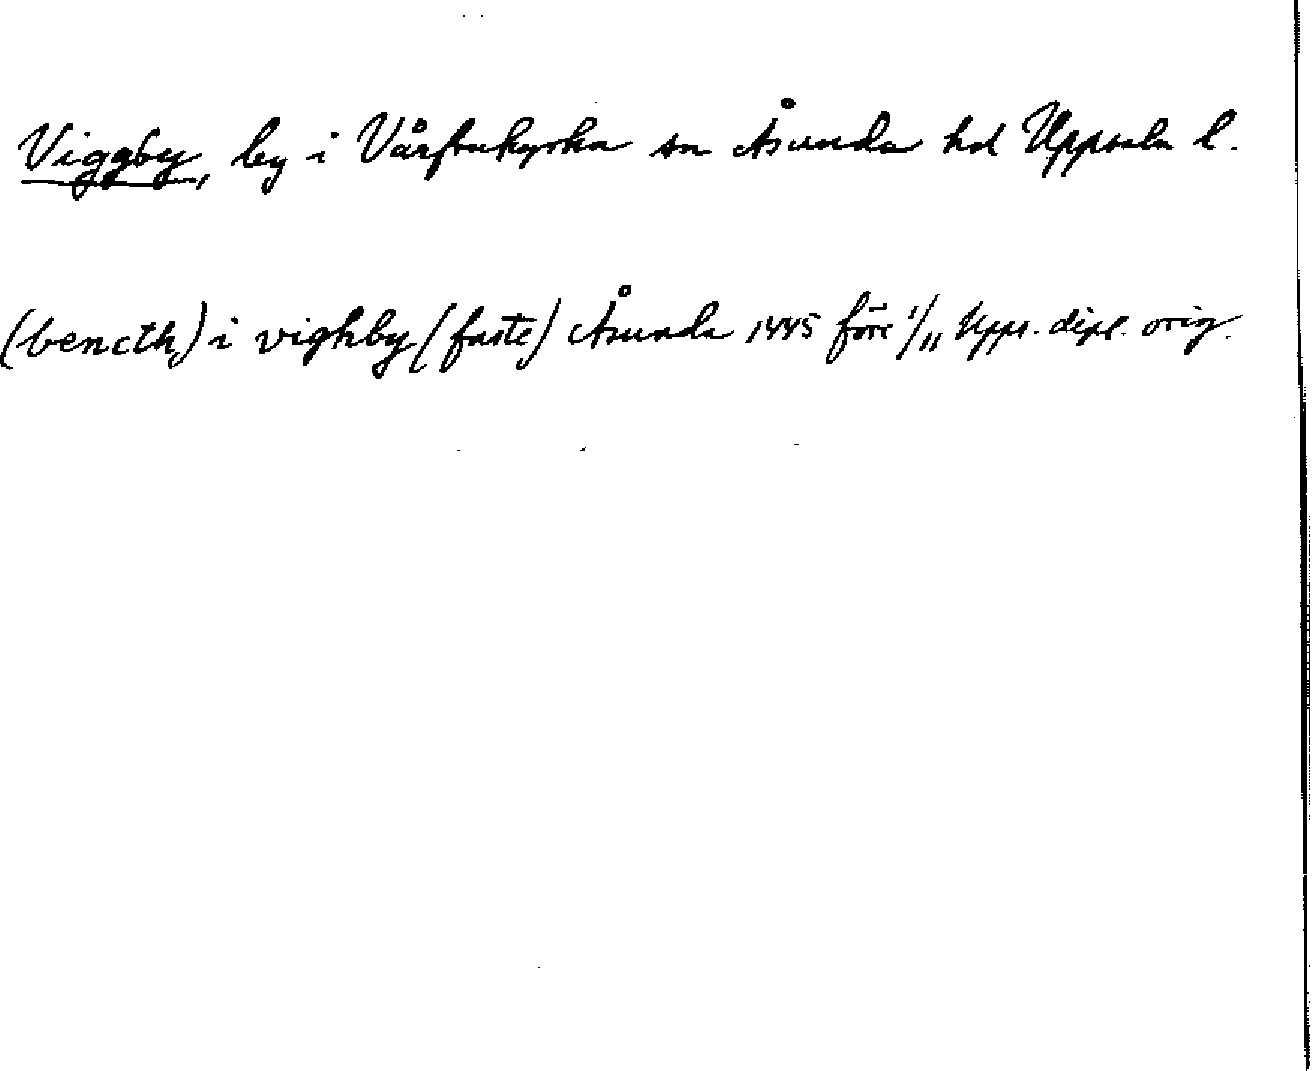 Viggby, by i Vårfrukyrka sn Åsunda hd Uppsala l.
(bencth) i vighby (faste) Åsunda 1445 före 1/11 Upps. dipl. orig.